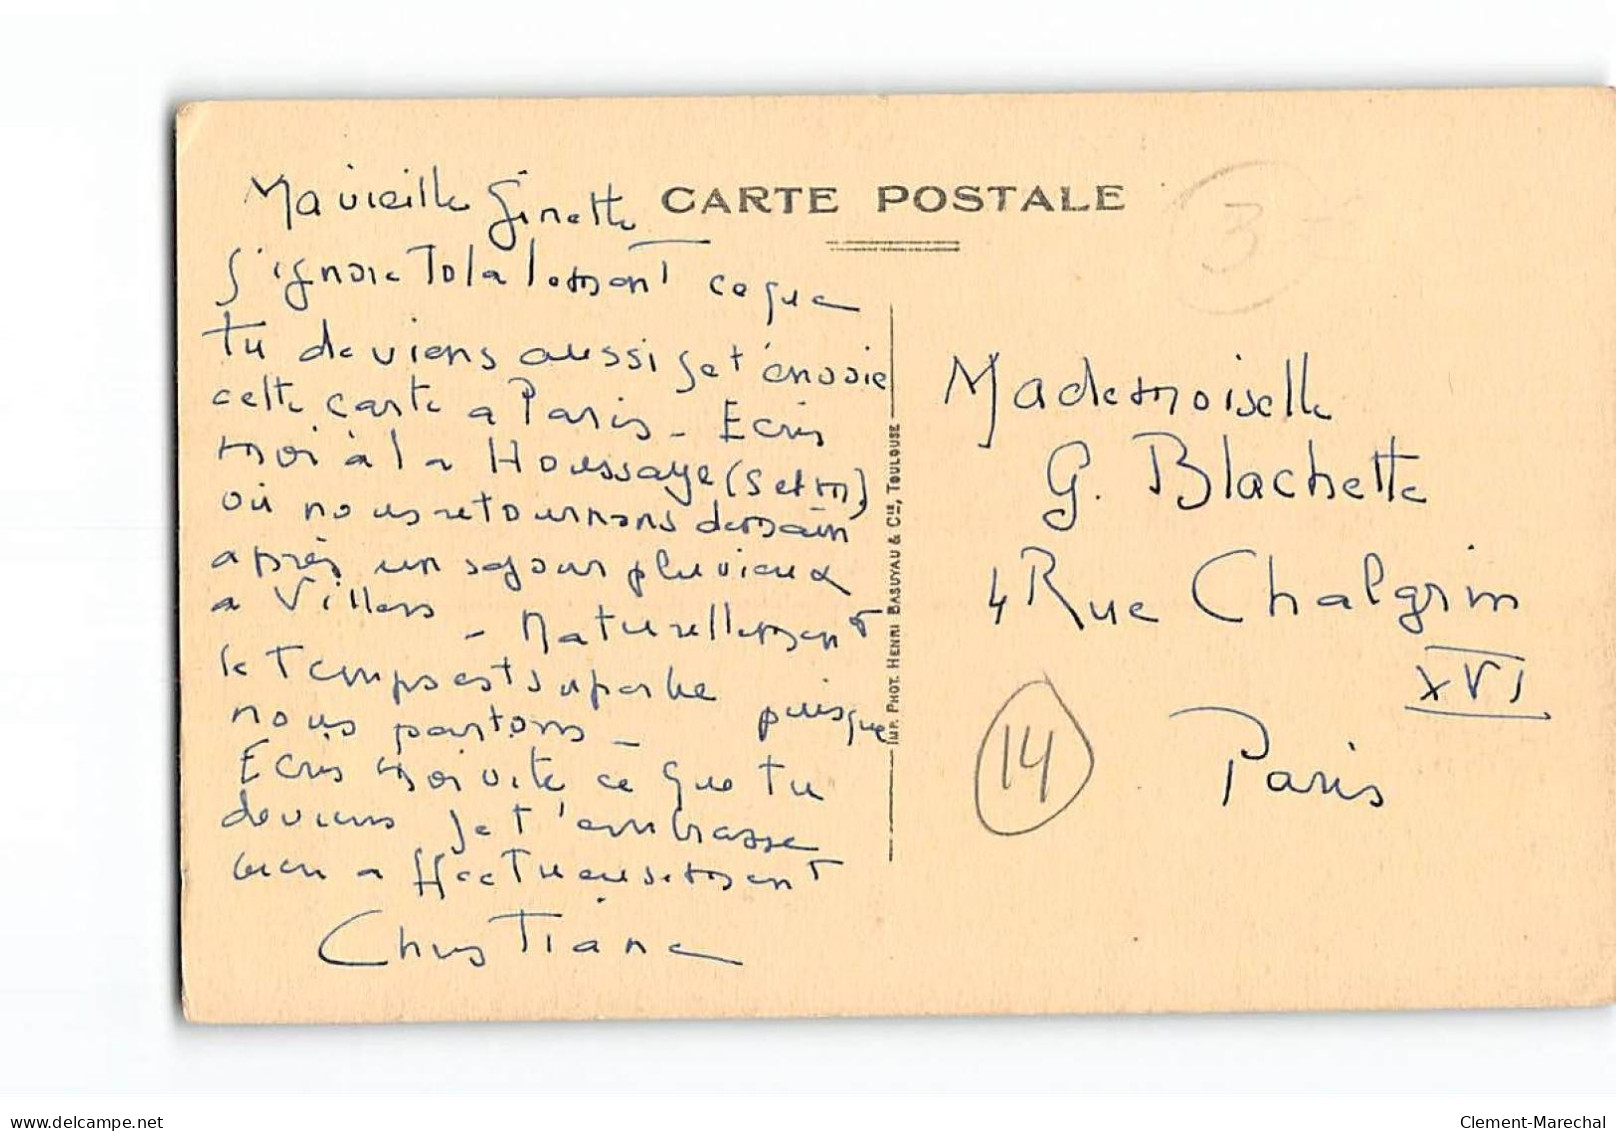 CARTE POSTALE
Ma vieille Ginette
J'ignore totalement ce que
tu deviens aussi je t'envoie
cette carte a Paris - Ecris
moi à la Houssaye (S et M)
où nous retournons demain
après un séjour pluvieux
a Villers - Naturellement
le temps est superbe puisque
nous partons -
Ecris moi vite ce que tu
deviens je t'embrasse
bien affectueusement
Christiane
IMP. PHOT. HENRI BASUYAU & Cie, TOULOUSE
3
Mademoiselle
G. Blachette
4 Rue Chalgrin
XVI
Paris
14
www.delcampe.net
Clement-Marechal